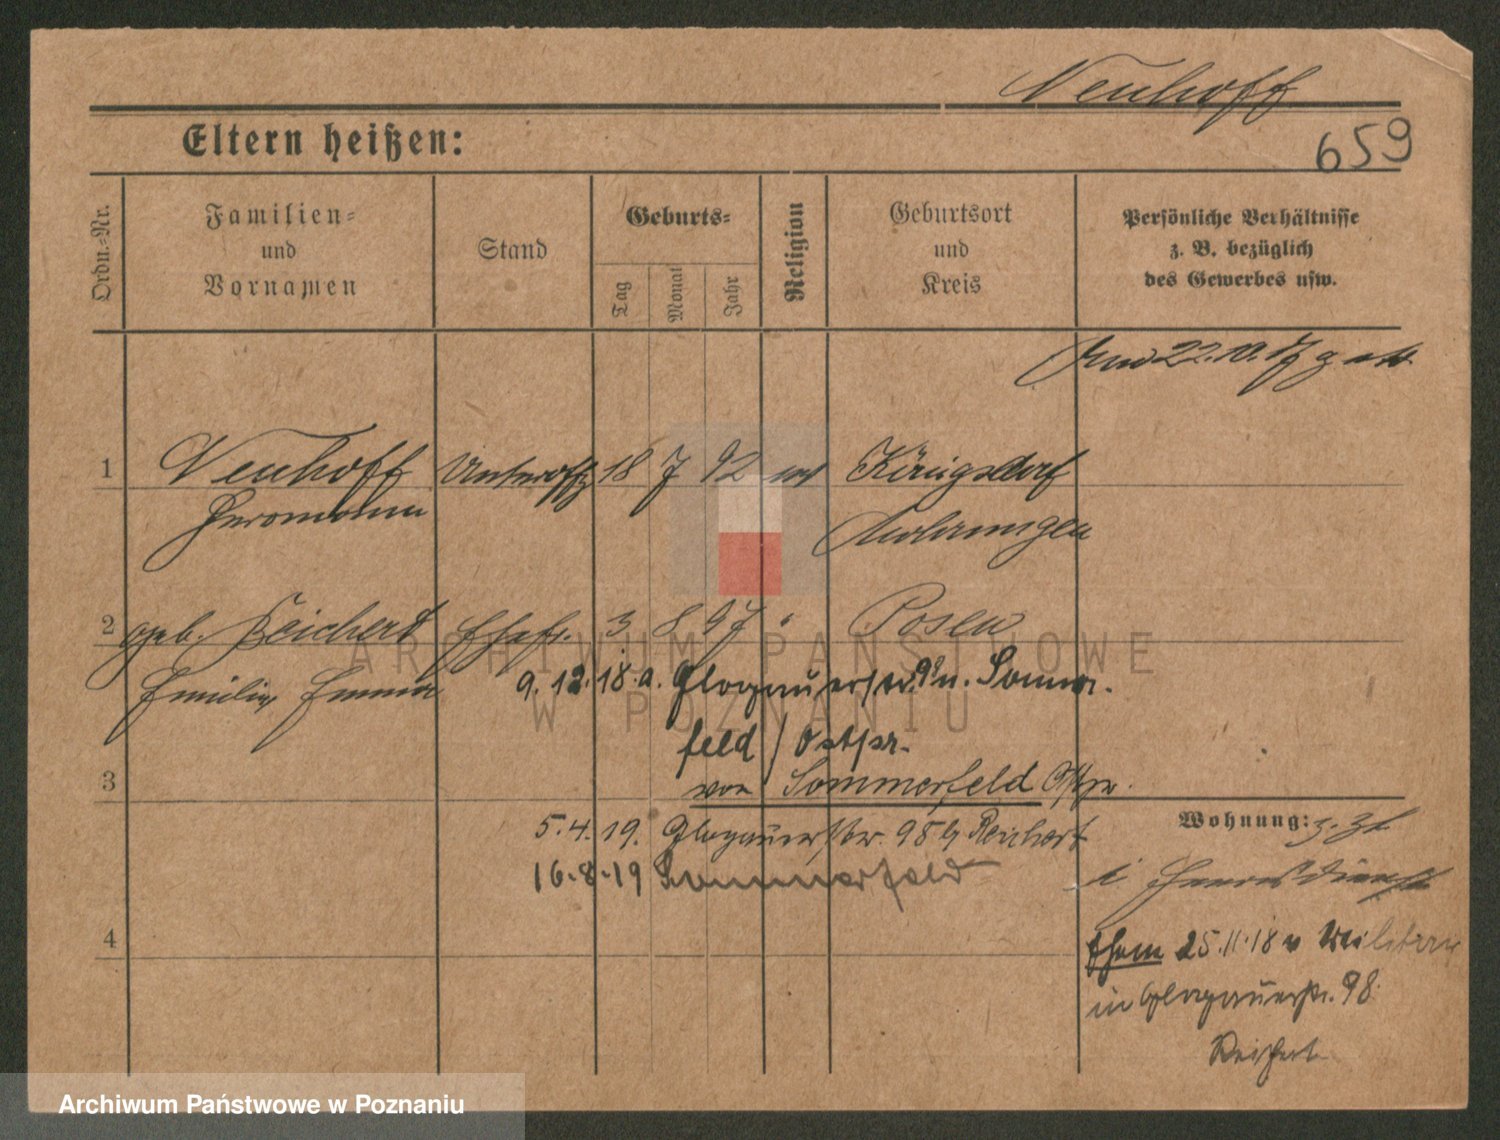 Neuhoff
659
Eltern heißen:
Ordn.-Nr.
Familien-
und
Vornamen
Stand
Geburts-
Tag
Monat
Jahr
Religion
Geburtsort
und
Kreis
Persönliche Verhältnisse
z. B. bezüglich
des Gewerbes usw.
22.10.17
1 Neuhoff Unteroffz 18 7 92 Königsdorf
Hermann Mohrungen
2 geb. Reichert Ehefr. 3 8 97 " Posen
Emilie Emma
9.12.18. a. Glogauerstr. 98 n. Sommer-
feld / Ostpr.
3 von Sommerfeld Ostpr.
Wohnung: z. Zt.
5.4.19. Glogauerstr. 98 b/ Reichert
i Heeresdienst
16.8.19 Sommerfeld
4 Ehem 25.11.18 v Militär
in Glogauerstr. 98
Reichert
ARCHIWUM PAŃSTWOWE
W POZNANIU
Archiwum Państwowe w Poznaniu